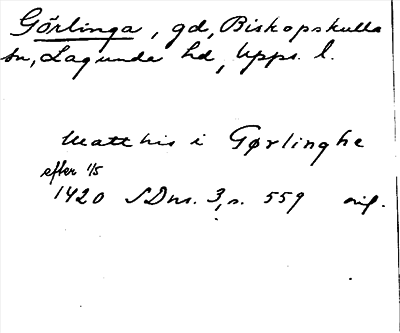 Görlinga, gd, Biskopskulla
sn, Lagunda hd, Upps. l.
Matthis i Gørlinghe
efter 1/5
1420 SDns. 3, s. 559 orig.